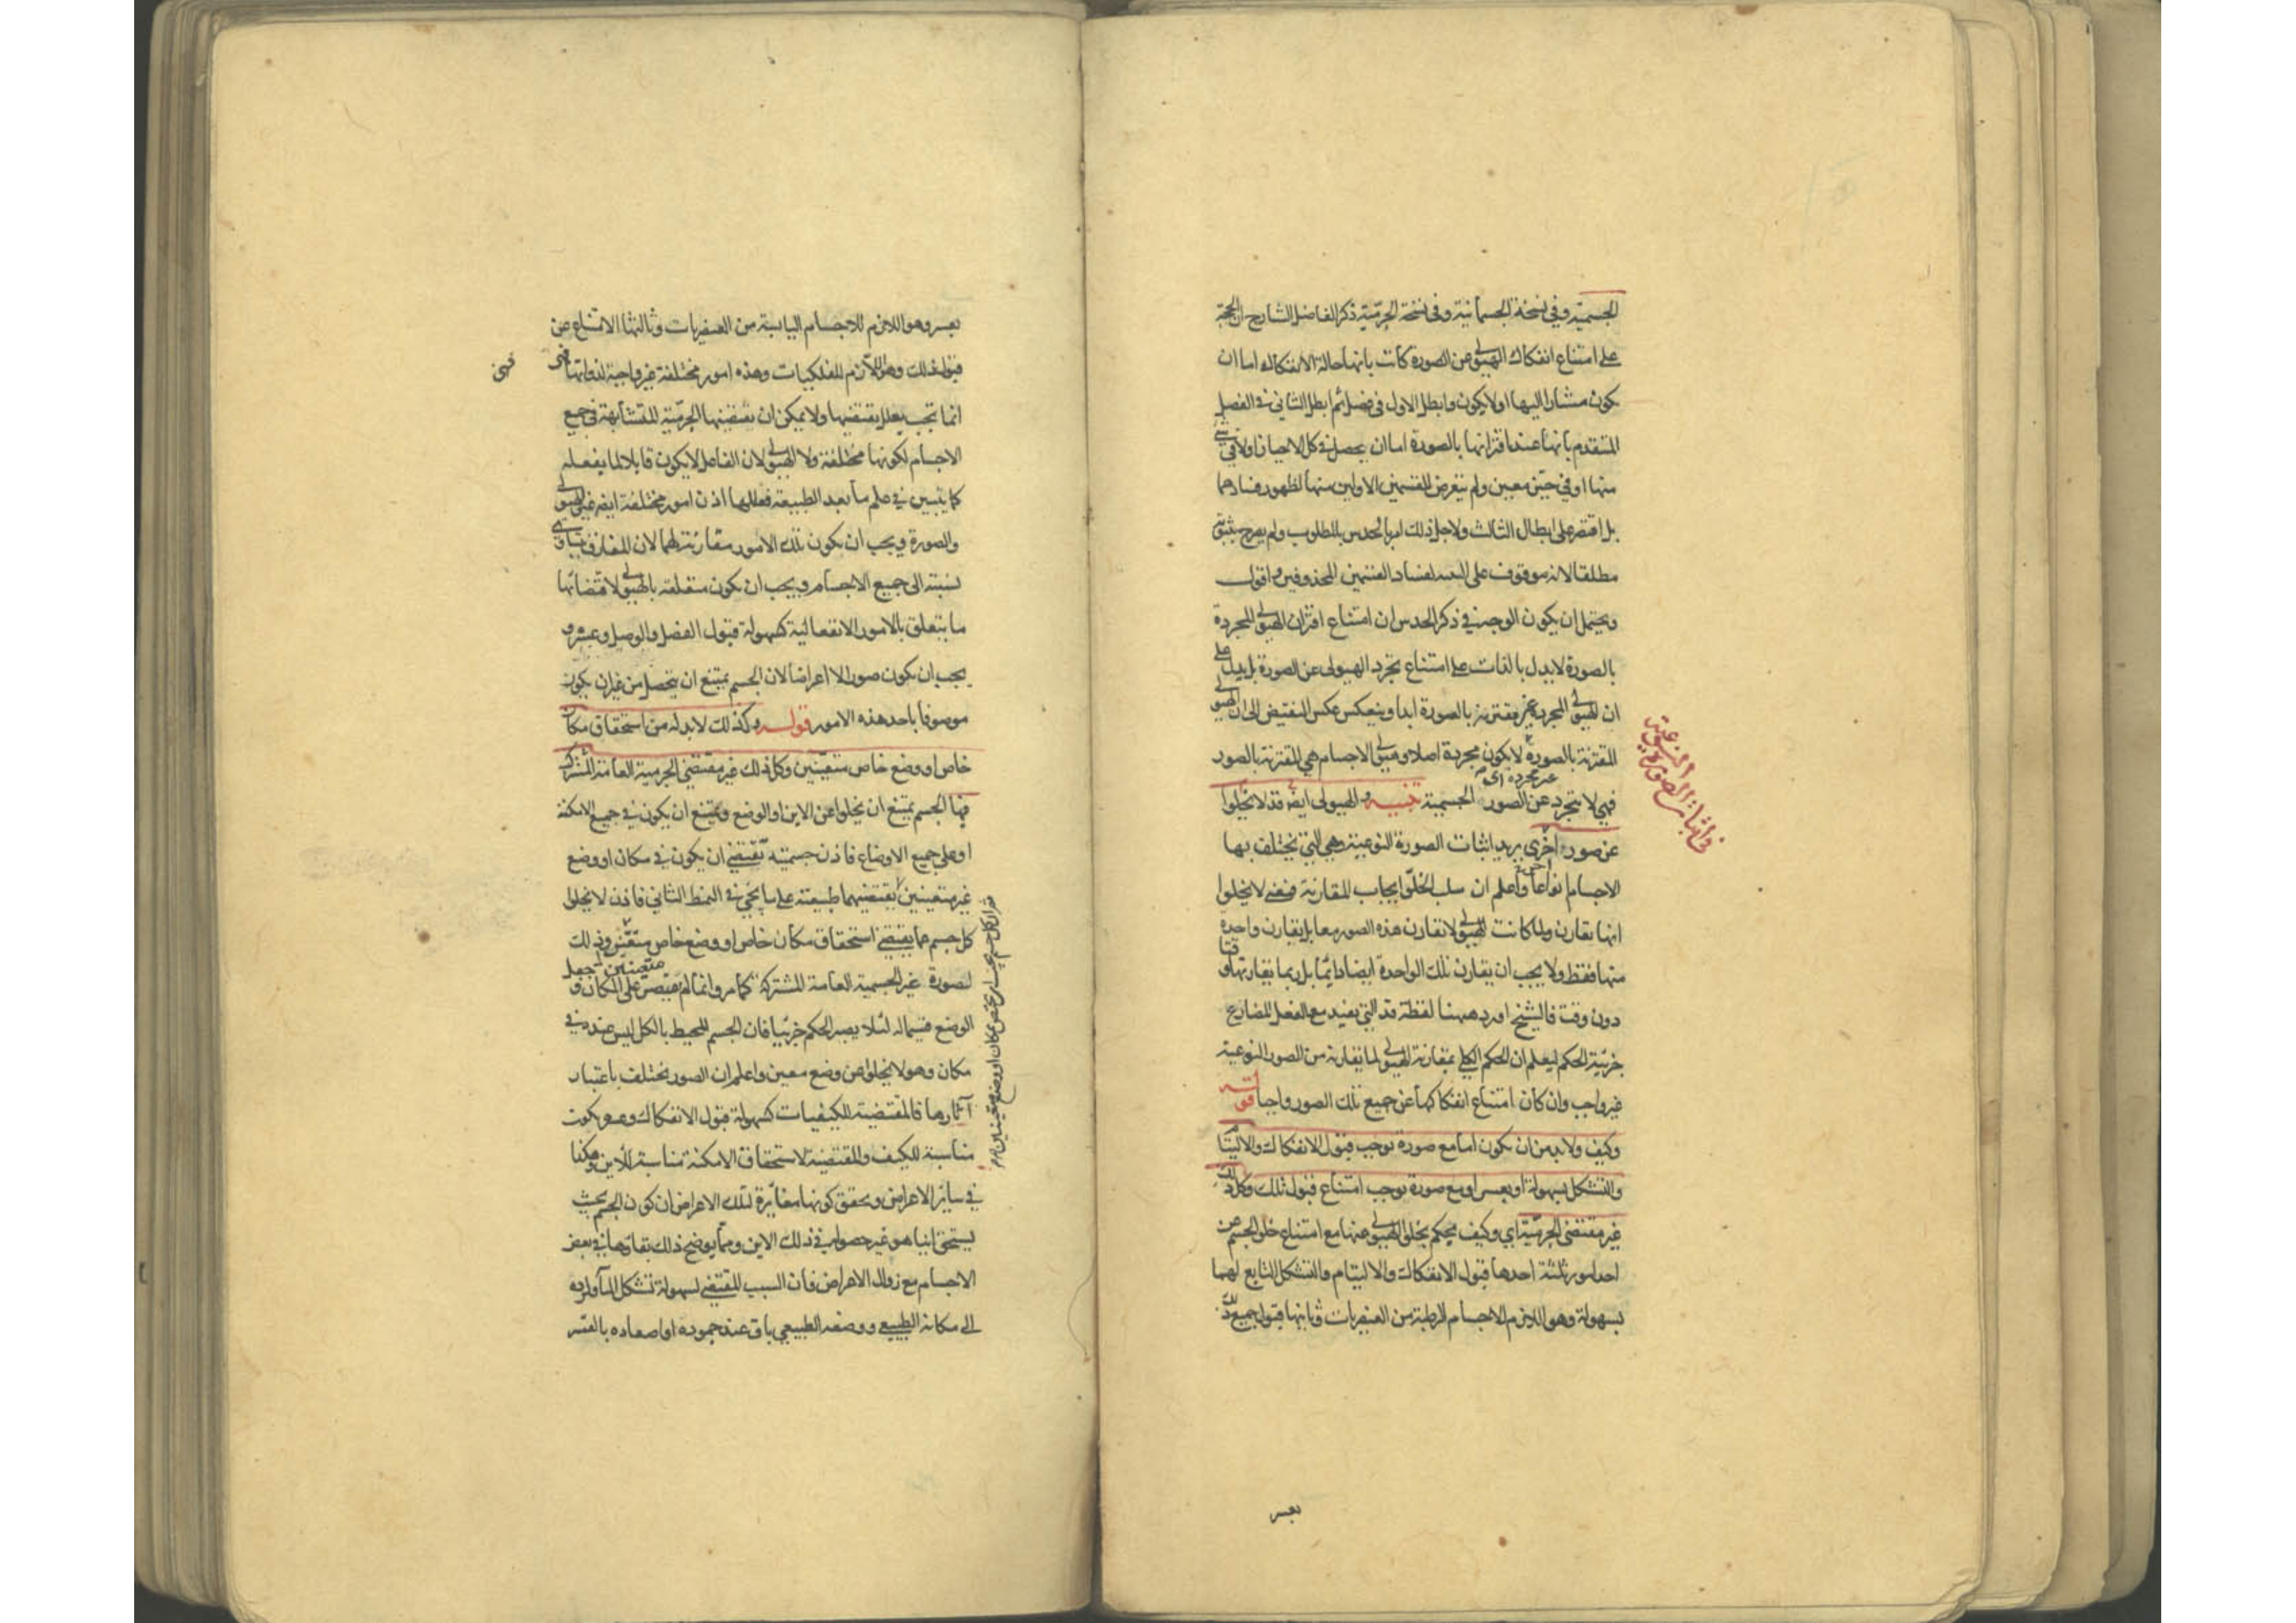 الجسمية وفي نسخة الجسمانية وفي نسخة الجرمية ذكر الفاضل الشارح ان الحجة
على امتناع انفكاك الهيولى عن الصورة كانت بانها حالة الانفكاك اما ان
يكون مشارا اليها اولا يكون وابطل الاول في فصل ثم ابطل الثاني في الفصل
المتقدم بانها عند اقترانها بالصورة اما ان يحصل في كل الاحياز اولا في شئ
منها او في حيز معين ولم يتعرض للقسمين الاولين منها لظهور فسادهما
بل اقتصر على ابطال الثالث ولاجل ذلك امر بالحدس بالمطلوب ولم يصرح بثبوته
مطلقا لانه موقوف على البيه لفساد القسمين المحذوفين واقول
ويحتمل ان يكون الوجه في ذكر الحدس ان امتناع اقتران الهيولى المجردة
بالصورة لا يدل بالذات على امتناع تجرد الهيولى عن الصورة بل يدل على
ان الهيولى المجردة غير مقترنة بالصورة ابدا وينعكس عكس النقيض الى ان الهيولى
المقترنة بالصورة لا يكون مجردة اصلا وهيولى الاجسام هي المقترنة بالصور
غير مجردة اى
فهي لا يتجرد عن الصور الجسمية تنبيه والهيولى ايضا قد لا يخلوا
عن صور اخرى يريد اثبات الصورة النوعية وهي التي يختلف بها
الاجسام انواعا واعلم ان سلب الخلو ايجاب المقارنة فمعنى لا يخلوا
انها يقارن ولما كانت الهيولى لا تقارن هذه الصور معا بل يقارن واحدة
منها فقط ولا يجب ان يقارن تلك الواحدة ايضا دائما بل ربما يقارنها وقتا
دون وقت فالشيخ اورد ههنا لفظة قد التي يفيد مع الفعل المضارع
جزئية الحكم ليعلم ان الحكم الكلى بمقارنة الهيولى لما يقارنه من الصور النوعية
غير واجب وان كان امتناع انفكاكها عن جميع تلك الصور واجبا قوله
وكيف ولا بد من ان يكون اما مع صورة توجب قبول الانفكاك والالتيام
والتشكل بسهولة او بعسر او مع صورة توجب امتناع قبول تلك وكل ذلك
غير مقتضى الجرمية اي وكيف يحكم بخلو الهيولى عنها مع امتناع خلو الجسم عن
احد امور ثلثة احدها قبول الانفكاك والالتيام والتشكل التابع لهما
بسهولة وهو اللازم للاجسام الرطبة من العنصريات وثانيها قبول جميع ذلك
بعسر
في اثبات الصورة النوعية
بعسر وهو اللازم للاجسام اليابسة من العنصريات وثالثها الامتناع عن
قبول ذلك وهو اللازم للفلكيات وهذه امور مختلفة غير واجبة لذواتها فهى
فهى
انما تجب بعلل يقتضيها ولا يمكن ان يقتضيها الجرمية المتشابهة في جميع
الاجسام لكونها مختلفة ولا الهيولى لان الفاعل لا يكون قابلا لما يفعله
كما يتبين في علم ما بعد الطبيعة فعللها اذن امور مختلفة ايضا غير الهيولى
والصورة ويجب ان يكون تلك الامور مقارنة لهما لان المفارق يتساوى
نسبته الى جميع الاجسام ويجب ان يكون متعلقة بالهيولى لاقتضائها
ما يتعلق بالامور الانفعالية كسهولة قبول الفصل والوصل وعسره و
يجب ان يكون صورا لا اعراضا لان الجسم يمتنع ان يتحصل من غير ان يكون
موصوفا باحد هذه الامور قوله وكذلك لا بد له من استحقاق مكان
خاص او وضع خاص متعينين وكل ذلك غير مقتضى الجرمية العامة المشترك
فيها الجسم يمتنع ان يخلوا عن الاين او الوضع ويمتنع ان يكون في جميع الامكنة
او على جميع الاوضاع فاذن جسميته تقتضي ان يكون في مكان او وضع
غير متعينين يقتضيهما طبيعته على ما يجئ في النمط الثاني فاذن لا يخلوا
كل جسم مما يقتضي استحقاق مكان خاص او وضع خاص متعين وذلك
لصورة غير الجسمية العامة المشتركة كما مر وانما لم يقتصر على المكان و جعل
الوضع قسيما له لئلا يصير الحكم جزئيا فان الجسم المحيط بالكل ليس عنده في
مكان وهو لا يخلو عن وضع معين واعلم ان الصور يختلف باعتبار
آثارها فالمقتضية للكيفيات كسهولة قبول الانفكاك وعسره يكون
مناسبة للكيف والمقتضية لاستحقاق الامكنة مناسبة للاين وهكذا
في سائر الاعراض ويحقق كونها مغايرة لتلك الاعراض ان كون الجسم بحيث
يستحق اينا هو غير حصوله في ذلك الاين ومما يوضح ذلك بقاؤها في بعض
الاجسام مع زوال الاعراض فان السبب المقتضي لسهولة تشكل الماء ولرده
الى مكانه الطبيعي ووضعه الطبيعي باق عند جموده او اصعاده بالقسر